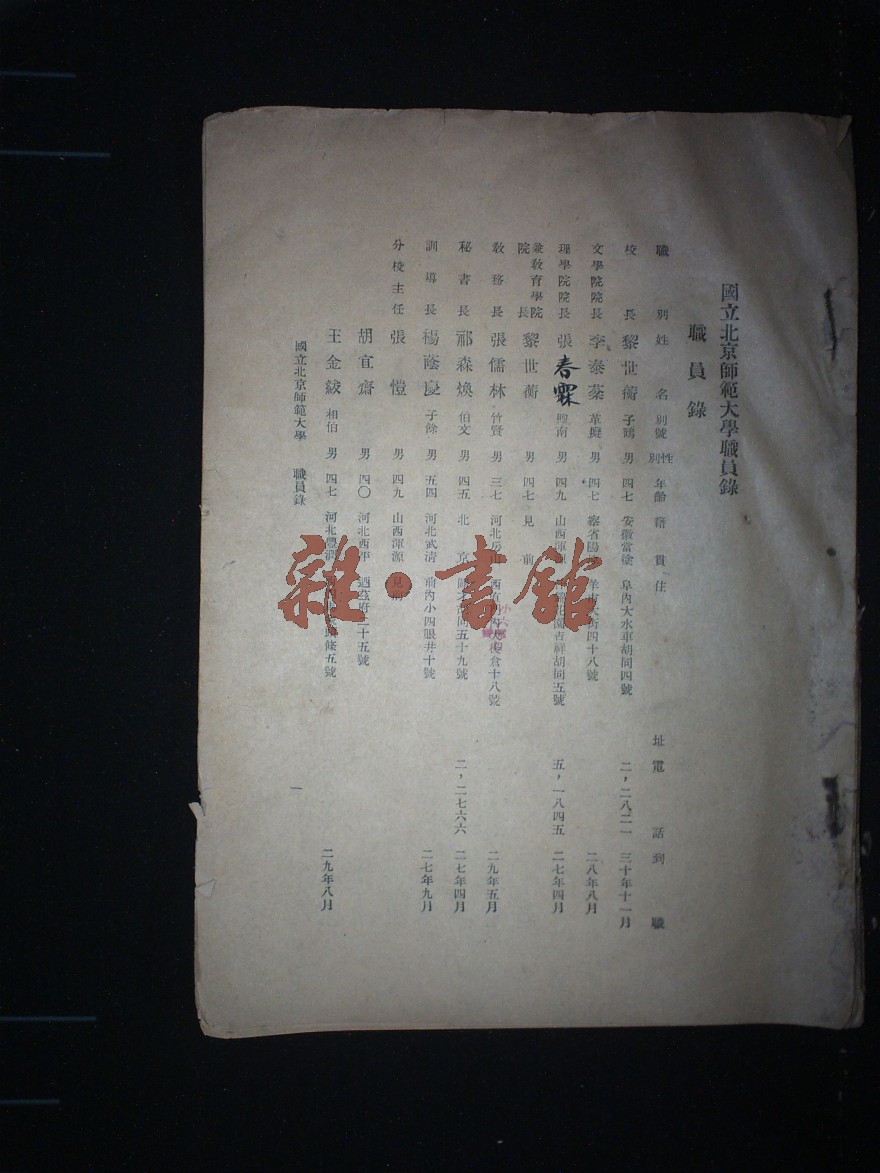 國立北京師範大學職員錄
職員錄
職別 姓名 別號 性別 年齡 籍貫 住址 電話 到職
校長 黎世蘅 子鶴 男 四七 安徽當塗 阜內大水車胡同四號 二,二八二一 三十年十一月
文學院院長 李泰棻 革癡 男 四七 察省陽 羊市大街四十八號 二八年八月
理學院院長 張春霖 男 四九 山西渾源 北園吉祥胡同五號 五,一八四五 二七年四月
兼教育學院院長 黎世蘅 男 四七 見前
教務長 張儒林 竹賢 男 三七 河北房山 西直門內大後倉十八號 二九年五月
秘書長 祁森煥 伯文 男 四五 北京 胡同五十九號 二,二七六六 二七年四月
訓導長 楊蔭慶 子餘 男 五四 河北武清 前內小四眼井十號 二七年九月
分校主任 張愷 男 四九 山西渾源 見前
胡宜齋 男 四〇 河北西平 迺茲府二十五號
王金紱 相伯 男 四七 河北豐潤 條五號 二九年八月
國立北京師範大學 職員錄 一
雜·書館